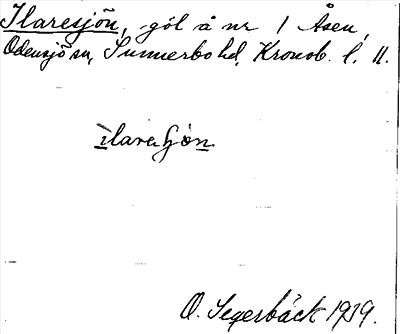 Ilaresjön, göl å nr 1 Åsen,
Odensjö sn, Sunnerbo hd, Kronob. l. 11.
ìlareſjön
O. Segerbäck 1919.